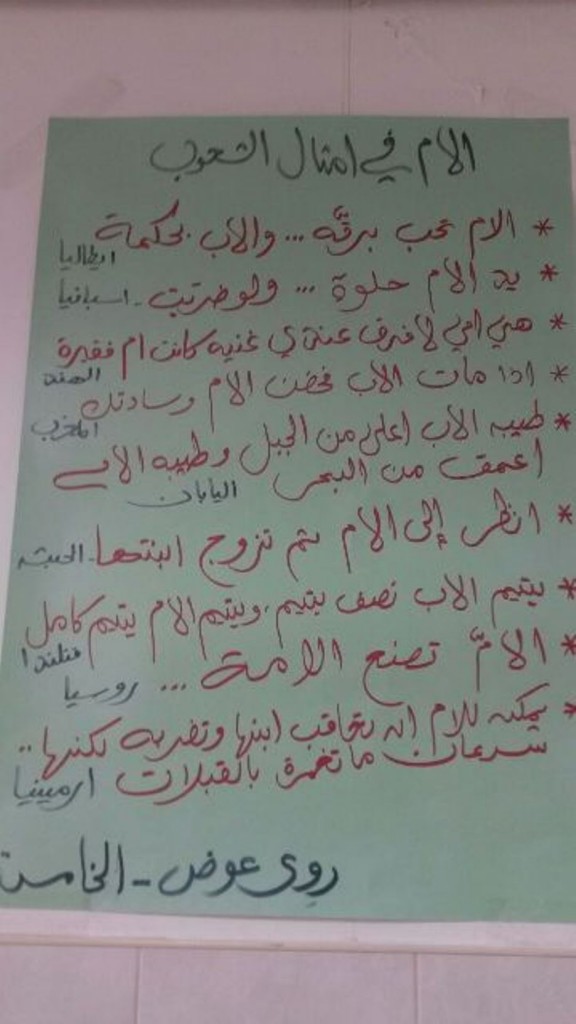 الام في امثال الشعوب
* الام تحب برقَّه ... والاب بحكمة
ايطاليا
* يد الام حلوة ... ولو ضربت - اسبانيا
* هي امي لا فرق عندي غنيه كانت ام فقيرة
الهند
* اذا مات الاب فحضن الأم وسادتك
المغرب
* طيبه الاب اعلى من الجبل وطيبه الام
اعمق من البحر اليابان
* انظر إلى الام ثم تزوج ابنتها - الحبشه
* يتيم الاب نصف يتيم، ويتيم الأم يتيم كامل
فنلندا
* الامّ تصنع الامة ... روسيا
* يمكن للام ان تعاقب ابنها وتضربه لكنها ..
سرعان ما تغمرة بالقبلات ارمينيا
روى عوض - الخامس